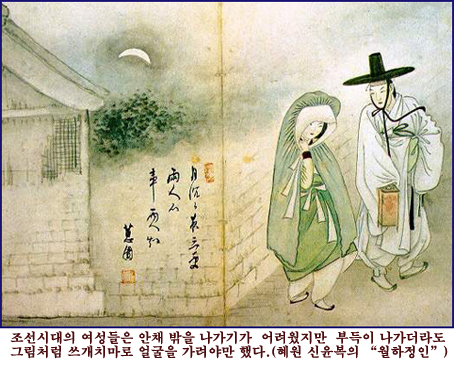 月沈〻夜三更
兩人心
事兩人知
蕙園
조선시대의 여성들은 안채 밖을 나가기가 어려웠지만 부득이 나가더라도
그림처럼 쓰개치마로 얼굴을 가려야만 했다.(혜원 신윤복의 “월하정인”)